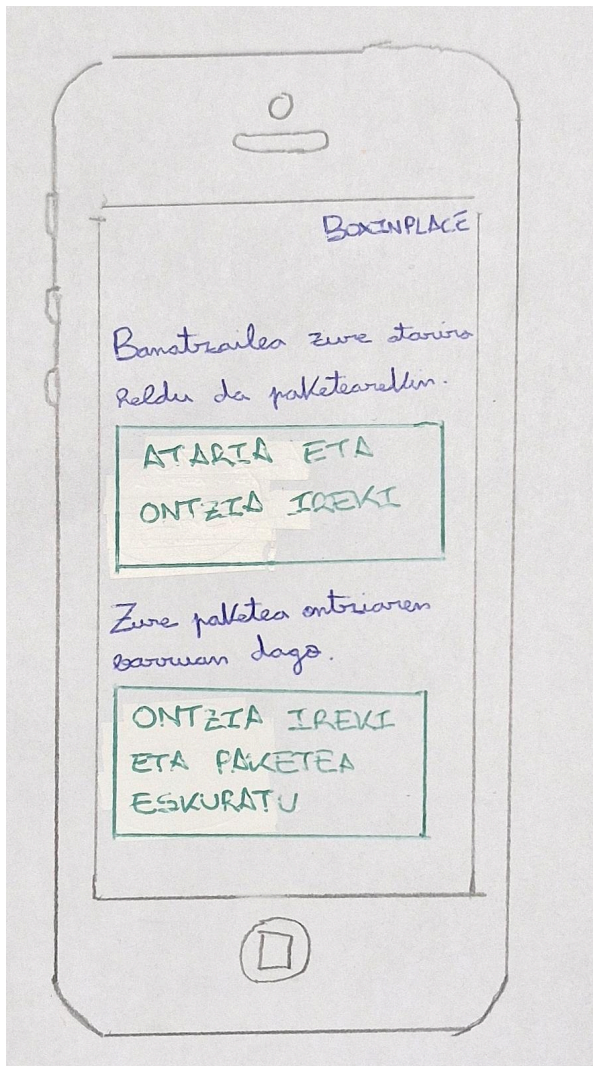 BOXINPLACE
Banatzailea zure atarira
heldu da paketearekin.
ATARIA ETA
ONTZIA IREKI
Zure paketea ontziaren
barruan dago.
ONTZIA IREKI
ETA PAKETEA
ESKURATU